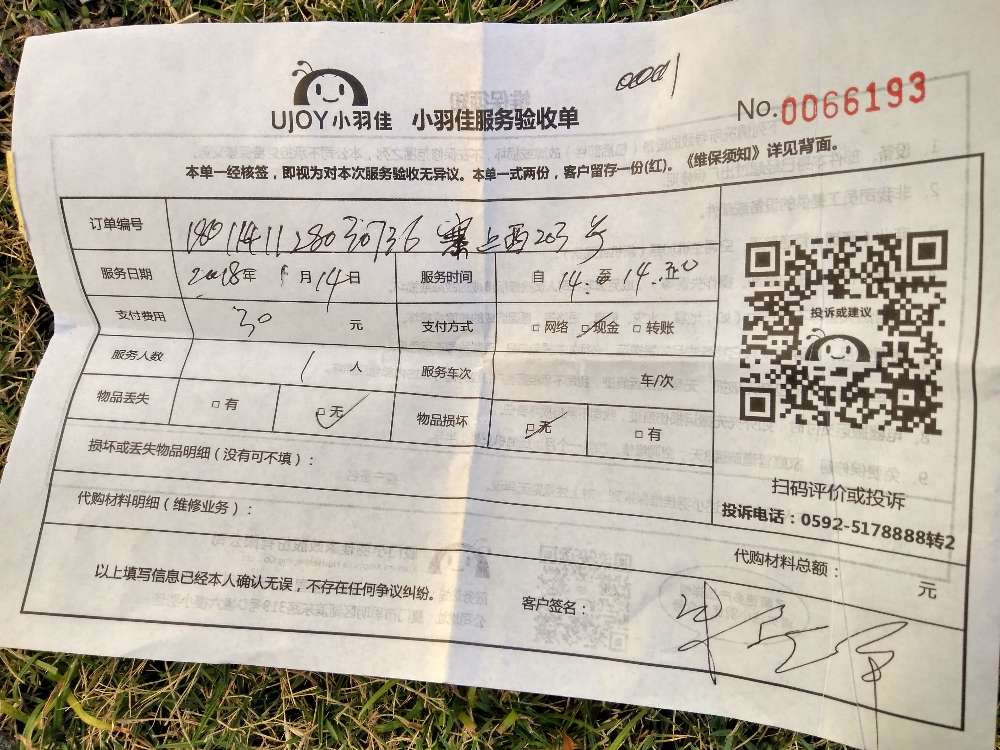 0001
UJOY小羽佳 小羽佳服务验收单
No.0066193
本单一经核签,即视为对本次服务验收无异议。本单一式两份,客户留存一份(红)。《维保须知》详见背面。
订单编号 寨上西203号
服务日期 2018年1月14日 服务时间 自14:至14:50
支付费用 30元 支付方式 □网络 □现金 □转账
服务人数 1人 服务车次 车/次
物品丢失 □有 □无 物品损坏 □无 □有
损坏或丢失物品明细(没有可不填):
代购材料明细(维修业务):
代购材料总额: 元
以上填写信息已经本人确认无误,不存在任何争议纠纷。
客户签名:
投诉或建议
扫码评价或投诉
投诉电话:0592-5178888转2